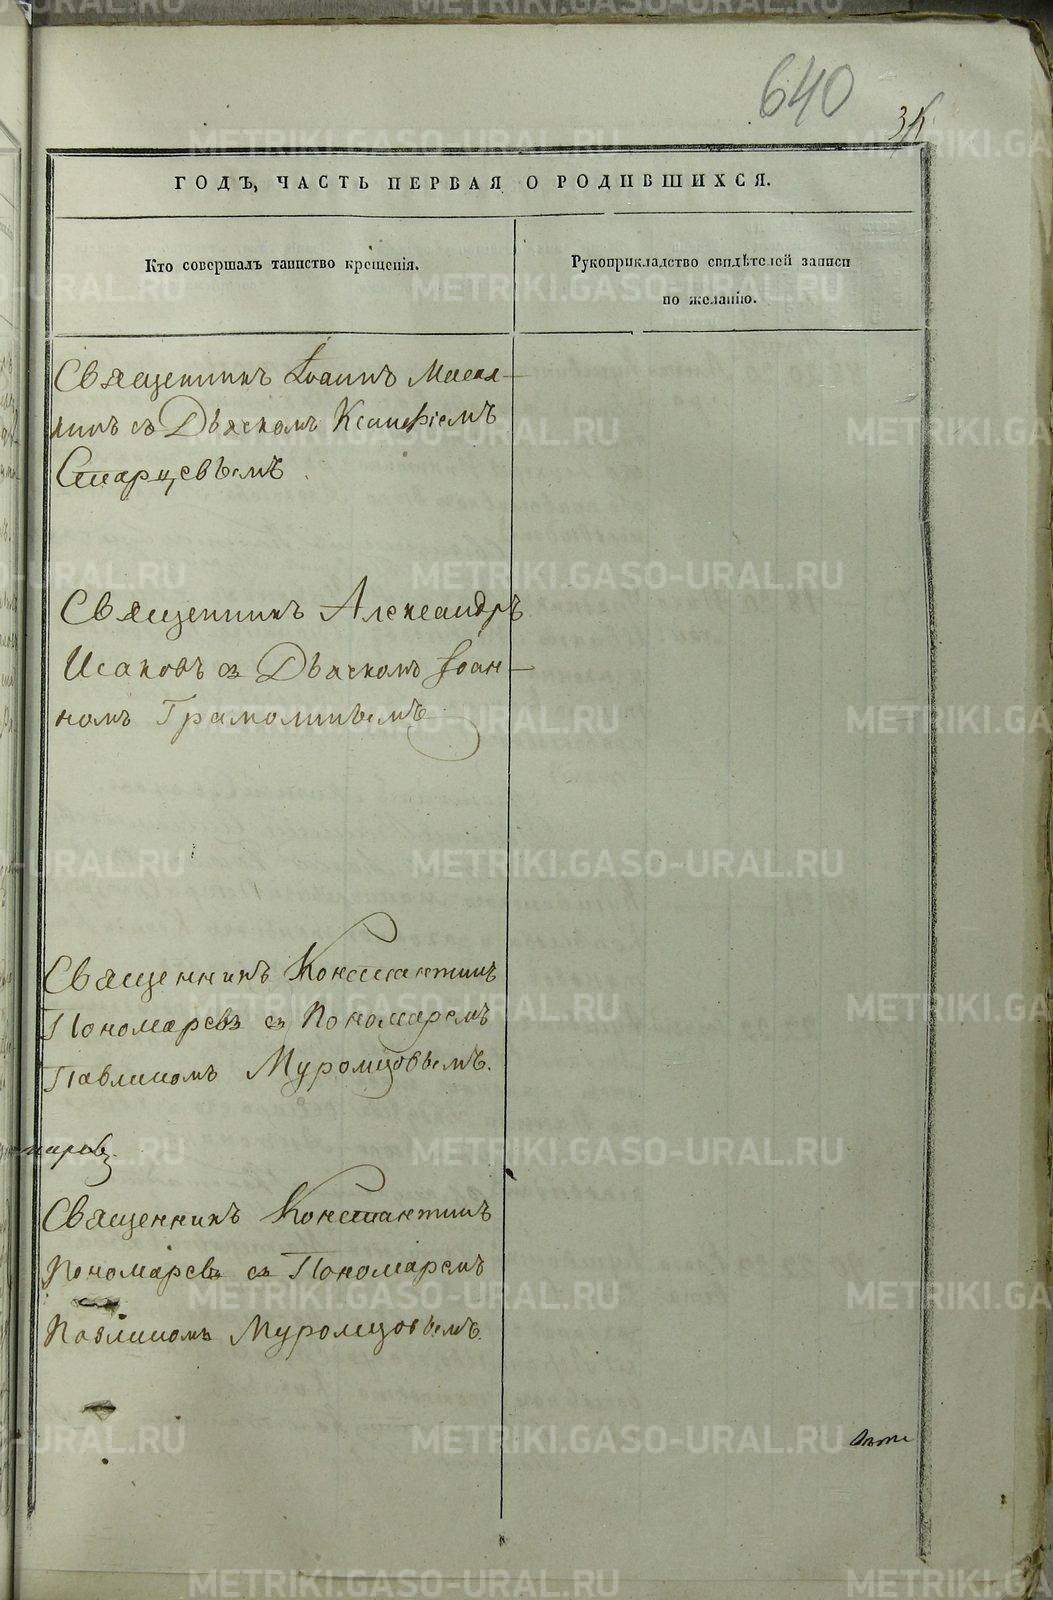 640
ГОДЪ, ЧАСТЬ ПЕРВАЯ О РОДИВШИХСЯ.
Кто совершалъ таинство крещенія.
Рукоприкладство свидѣтелей записи
по желанію.
Священникъ Іоаннъ
съ Дьячкомъ Ксанѳіемъ
Старцевымъ
Священникъ Александръ
Исаковъ съ Дьячкомъ Іоан-
номъ Грамолинымъ
Священникъ Константинъ
Пономаревъ съ Пономаремъ
Павлиномъ Муромцовымъ.
Священникъ Константинъ
Пономаревъ съ Пономаремъ
Павлиномъ Муромцовымъ.
METRIKI.GASO-URAL.RU